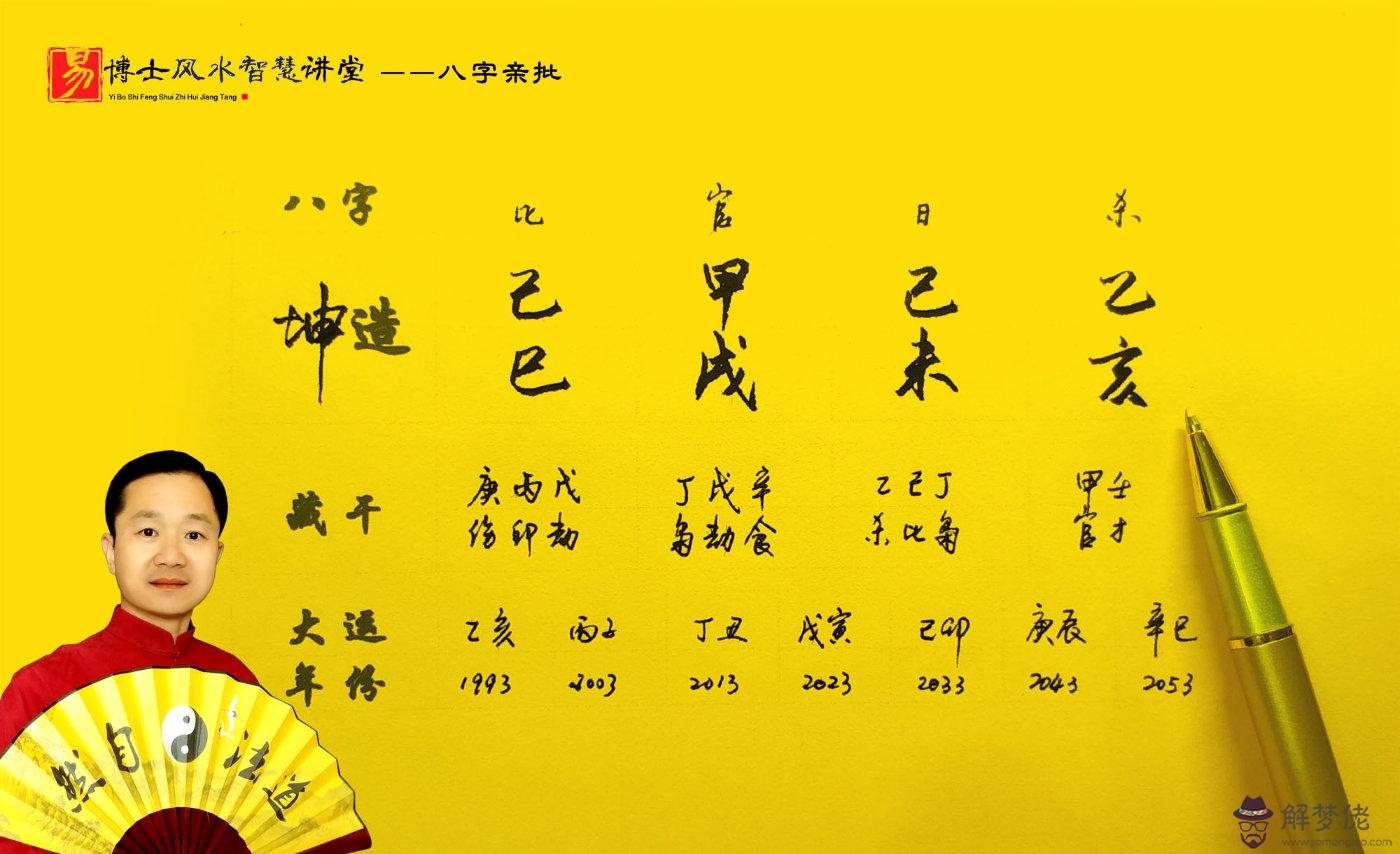 易 博士风水智慧讲堂 ——八字亲批
Yi Bo Shi Feng Shui Zhi Hui Jiang Tang
八字 比 官 日 杀
坤造 己 甲 己 乙
巳 戌 未 亥
藏干 庚丙戊 丁戊辛 乙己丁 甲壬
伤印劫 枭劫食 杀比枭 官才
大运 乙亥 丙子 丁丑 戊寅 己卯 庚辰 辛巳
年份 1993 2003 2013 2023 2033 2043 2053
然自 法道
解梦佬
www.jiemenglao.com